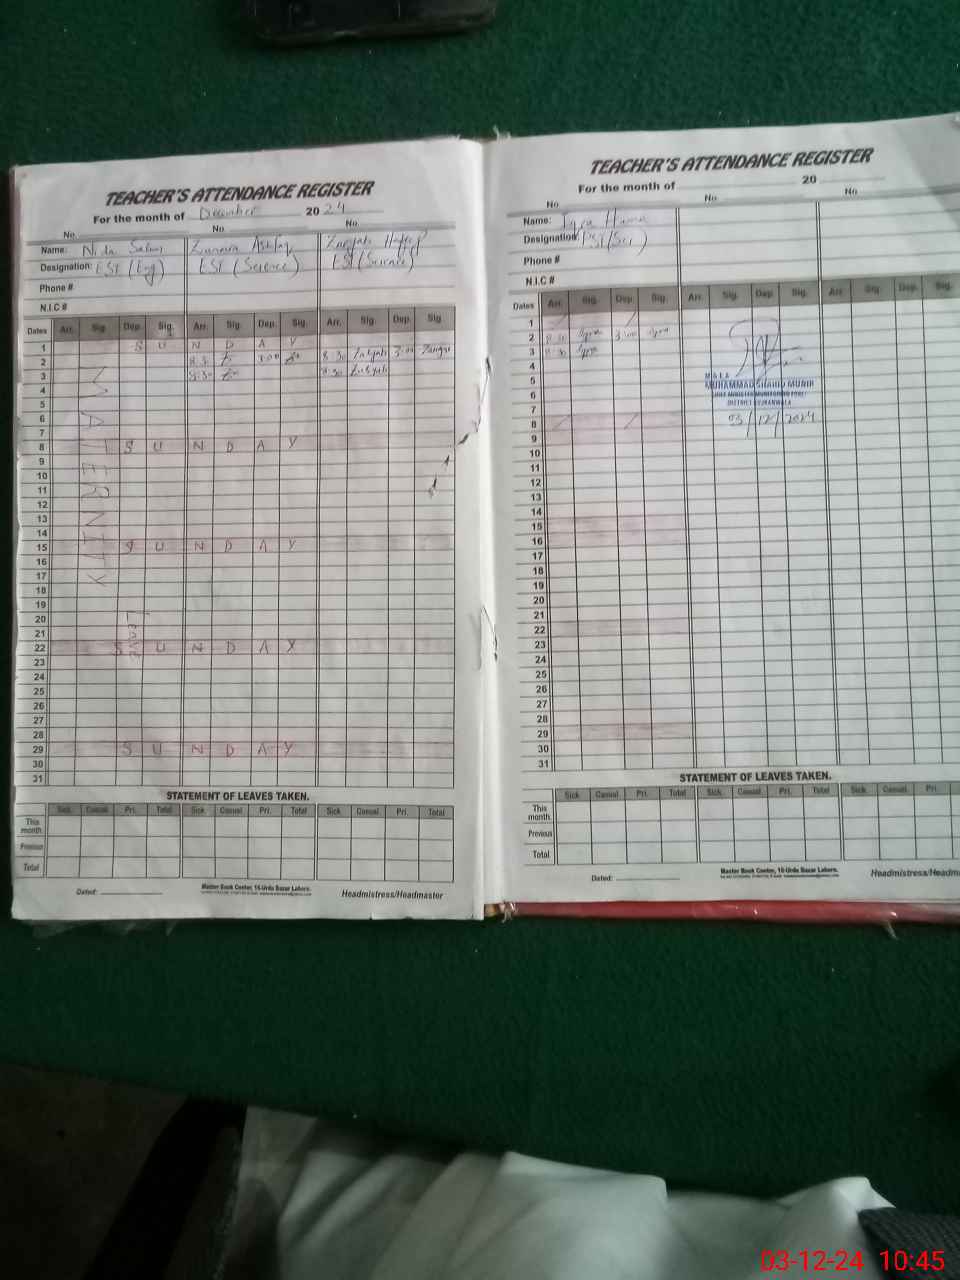 TEACHER'S ATTENDANCE REGISTER
For the month of December 2024
No. No. No.
Name: Nida Zunaira Ashfaq
Designation: EST (Eng) EST (Science) EST (Science)
Phone #
N.I.C #
Dates Arr. Sig. Dep. Sig. Arr. Sig. Dep. Sig. Arr. Sig. Dep. Sig.
1 S U N D A Y
2 8:30 3:00 8:30 3:00
3 8:30 8:30
4
5
6
7
8 S U N D A Y
9
10
11
12
13
14
15 S U N D A Y
16
17
18
19
20
21
22 S U N D A Y
23
24
25
26
27
28
29 S U N D A Y
30
31
MATERNITY
LEAVE
STATEMENT OF LEAVES TAKEN.
Sick. Casual. Pri. Total Sick. Casual. Pri. Total Sick Casual. Pri. Total
This month.
Previous
Total
Dated:
Master Book Center, 16-Urdu Bazar Lahore.
Headmistress/Headmaster
TEACHER'S ATTENDANCE REGISTER
For the month of 20
No No. No
Name: Iqra
Designation:
Phone #
N.I.C #
Dates Arr. Sig. Dep. Sig. Arr. Sig. Dep. Sig. Arr. Sig. Dep. Sig.
1
2 8:30 Iqra 3:00 Iqra
3 8:30 Iqra
4
5
6
7
8
9
10
11
12
13
14
15
16
17
18
19
20
21
22
23
24
25
26
27
28
29
30
31
M & E A
MUHAMMAD SHAHID MUNIR
CHIEF MINISTER MONITORING FORCE
DISTRICT GUJRANWALA
03/12/2024
STATEMENT OF LEAVES TAKEN.
Sick. Casual. Pri. Total Sick. Casual. Pri. Total Sick Casual. Pri.
This month.
Previous
Total
Dated:
Master Book Center, 16-Urdu Bazar Lahore.
Headmistress/Headm
03-12-24 10:45